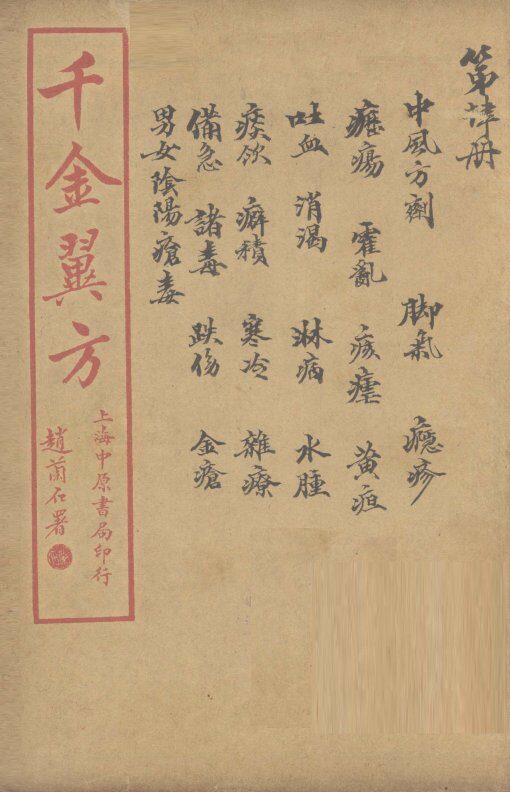 第册
中風方劑 脚氣 癮疹
癧瘍 霍亂 痎瘧 黄疸
吐血 消渴 淋病 水腫
痰飲 癖積 寒冷 雜療
備急 諸毒 跌傷 金瘡
男女陰陽瘡毒
千金翼方
上海中原書局印行
趙蘭石署